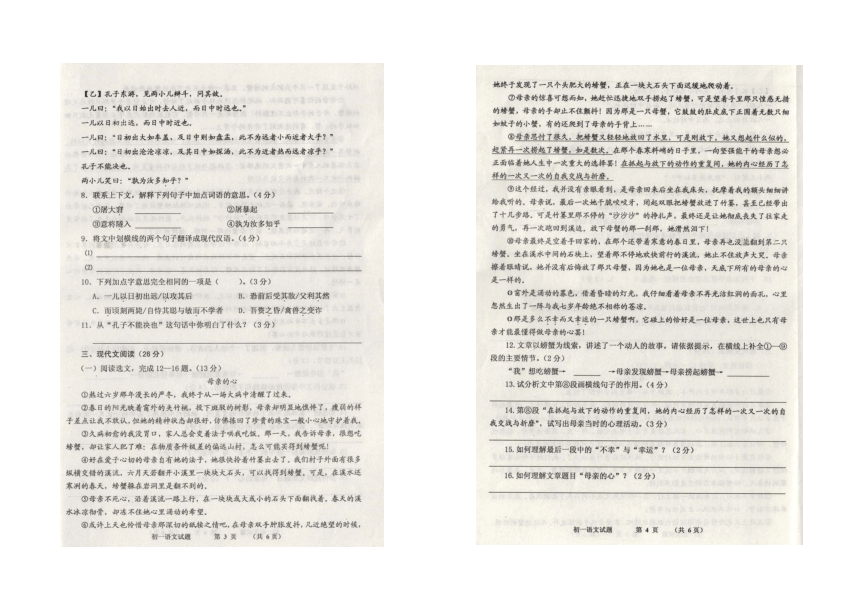 【乙】孔子东游，见两小儿辩斗，问其故。
一儿曰：“我以日始出时去人近，而日中时远也。”
一儿以日初出远，而日中时近也。
一儿曰：“日初出大如车盖，及日中则如盘盂，此不为远者小而近者大乎？”
一儿曰：“日初出沧沧凉凉，及其日中如探汤，此不为近者热而远者凉乎？”
孔子不能决也。
两小儿笑曰：“孰为汝多知乎？”
8. 联系上下文，解释下列句子中加点词语的意思。（4分）
①屠大窘 ②屠暴起
③意将隧入 ④孰为汝多知乎
9. 将文中划横线的两个句子翻译成现代汉语。（4分）
(1)
(2)
10. 下列加点字意思完全相同的一项是（ ）。（3分）
A. 一儿以日初出远/以攻其后 B. 恐前后受其敌/父利其然
C. 而顷刻两毙/自恃其聪与敏而不学者 D. 吾资之昏/禽兽之变诈
11. 从“孔子不能决也”这句话中你明白了什么？（3分）
三、现代文阅读（26分）
（一）阅读选文，完成12—16题。（13分）
母亲的心
①熬过六岁那年漫长的严冬，我终于从一场大病中清醒了过来。
②春日的阳光映着窗外的美行桃，投下斑驳的树影，母亲却明显地憔悴了，瘦弱的样
子差点让我不敢认，但她的精神状态却很好，仿佛拣回了珍贵的珠宝一般小心地守护着我。
③久病初愈的我没胃口，家人总会变着法子哄我吃饭，那一天，我告诉母亲，很想吃
螃蟹，却让家人犯了难：在物质条件极差的偏远山村，怎么可能买得到螃蟹呢！
④好在爱子心切的母亲自有她的法子，她很快拎着竹篓出去了。我们村子外面有很多
纵横交错的溪流，六月天若翻开小溪里一块块大石头，可以找得到螃蟹。可是，在溪水还
寒冽的春天，螃蟹躲在岩洞里是翻不到的。
⑤母亲不死心，沿着溪流一路上行，在一块块或大或小的石头下面翻找着。春天的溪
水冰凉彻骨，却冻不住她心里涌动的希望。
⑥或许上天也怜惜母亲那深切的舐犊之情吧，在母亲双手肿胀发抖，几近绝望的时候，
初一语文试题 第 3 页 （共 6 页）
她终于发现了一只个头肥大的螃蟹，正在一块大石头下面迟缓地爬动着。
⑦母亲的惊喜可想而知，她赶忙迅捷地双手捞起了螃蟹，可是望着手里那只惶惑无措
的螃蟹，母亲的手却止不住颤抖！因为那是一只母蟹，它鼓鼓的肚皮底下正围着无数只细
如蚊子的小蟹，有的还爬到了母亲的手背上……
⑧母亲思忖了很久，把螃蟹又轻轻地放回了水里，可是刚放下，她又想起什么似的，
赶紧再一次捞起了螃蟹，如是数次。在那个春寒料峭的日子里，一向坚强能干的母亲想必
正面临着她人生中一次重大的选择罢！在抓起与放下的动作的重复间，她的内心经历了怎
样的一次又一次的自我交战与折磨。
⑨这个经过，我并没有亲眼看到，是母亲回来后坐在我床头，抚摩着我的额头细细讲
给我听的，母亲说，最后一次她干脆咬咬牙，闭起双眼把螃蟹放进了竹篓，甚至已经带出
了十几步路，可是竹篓里那不停的“沙沙沙”的挣扎声，最终还是让她彻底丧失了往家走
的勇气，再一次跑回到溪边，放下母蟹的那一刹那，她潸然泪下！
⑩母亲最终是空着手回家的，在那个还带着寒意的春日里，母亲再也没翻到第二只
螃蟹，坐在溪水中间的石块上，望着那不停地欢快前行的溪流，她止不住放声大哭，母亲
擦着眼睛说，她并没有后悔放了那只母蟹，因为她也是一位母亲，天底下所有的母亲的心
是一样的。
窗外是涌动的暮色，借着昏暗的灯光，我仔细看着母亲不再光洁红润的面孔，心里
忽然生出了一阵与我七岁年龄绝不相称的苍凉。
那是多么不幸而又幸运的一只螃蟹啊，它碰上的恰好是一位母亲，这世上也只有母
亲才能最懂得做母亲的心罢！
12. 文章以螃蟹为线索，讲述了一个动人的故事。请依据提示，在横线上补全①—⑩
段的主要情节。（2分）
“我”想吃螃蟹→ →母亲发现螃蟹→母亲捞起螃蟹→
13. 试分析文中第⑧段画横线句子的作用。（4分）
14. 第⑧段“在抓起与放下的动作的重复间，她的内心经历了怎样的一次又一次的自
我交战与折磨”，试写出母亲当时的心理活动。（3分）
15. 如何理解最后一段中的“不幸”与“幸运”？（2分）
16. 如何理解文章题目“母亲的心”？（2分）
初一语文试题 第 4 页 （共 6 页）